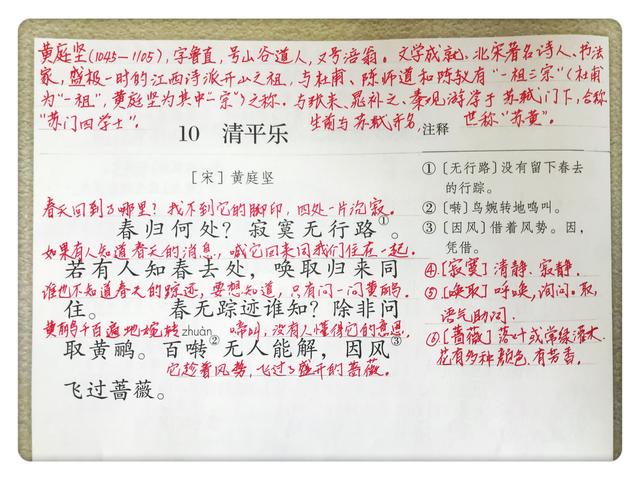 黄庭坚(1045—1105),字鲁直,号山谷道人,又号涪翁。文学成就,北宋著名诗人、书法
家,盛极一时的江西诗派开山之祖,与杜甫、陈师道和陈与义有“一祖三宗”(杜甫
为“一祖”,黄庭坚为其中一宗)之称。与张耒、晁补之、秦观游学于苏轼门下,合称
“苏门四学士”。生前与苏轼齐名,世称“苏黄”。
10 清平乐
[宋]黄庭坚
春天回到了哪里?我不到它的脚印,四处一片沉寂。
春归何处?寂寞无行路①。
如果有人知道春天的消息,喊它回来同我们住在一起。
若有人知春去处,唤取归来同
谁也不知道春天的踪迹,要想知道,只有问一问黄鹂。
住。 春无踪迹谁知?除非问
黄鹂千百遍地婉转啼叫,没有人懂得它的意思。
zhuàn
取黄鹂。百啭②无人能解,因风③
它趁着风势,飞过了盛开的蔷薇。
飞过蔷薇。
注释
①[无行路]没有留下春去
的行踪。
②[啭]鸟婉转地鸣叫。
③[因风]借着风势。因,
凭借。
④[寂寞]清静,寂静。
⑤[唤取]呼唤,询问。取,
语气助词。
⑥[蔷薇]落叶或常绿灌木,
花有多种颜色,有芳香。